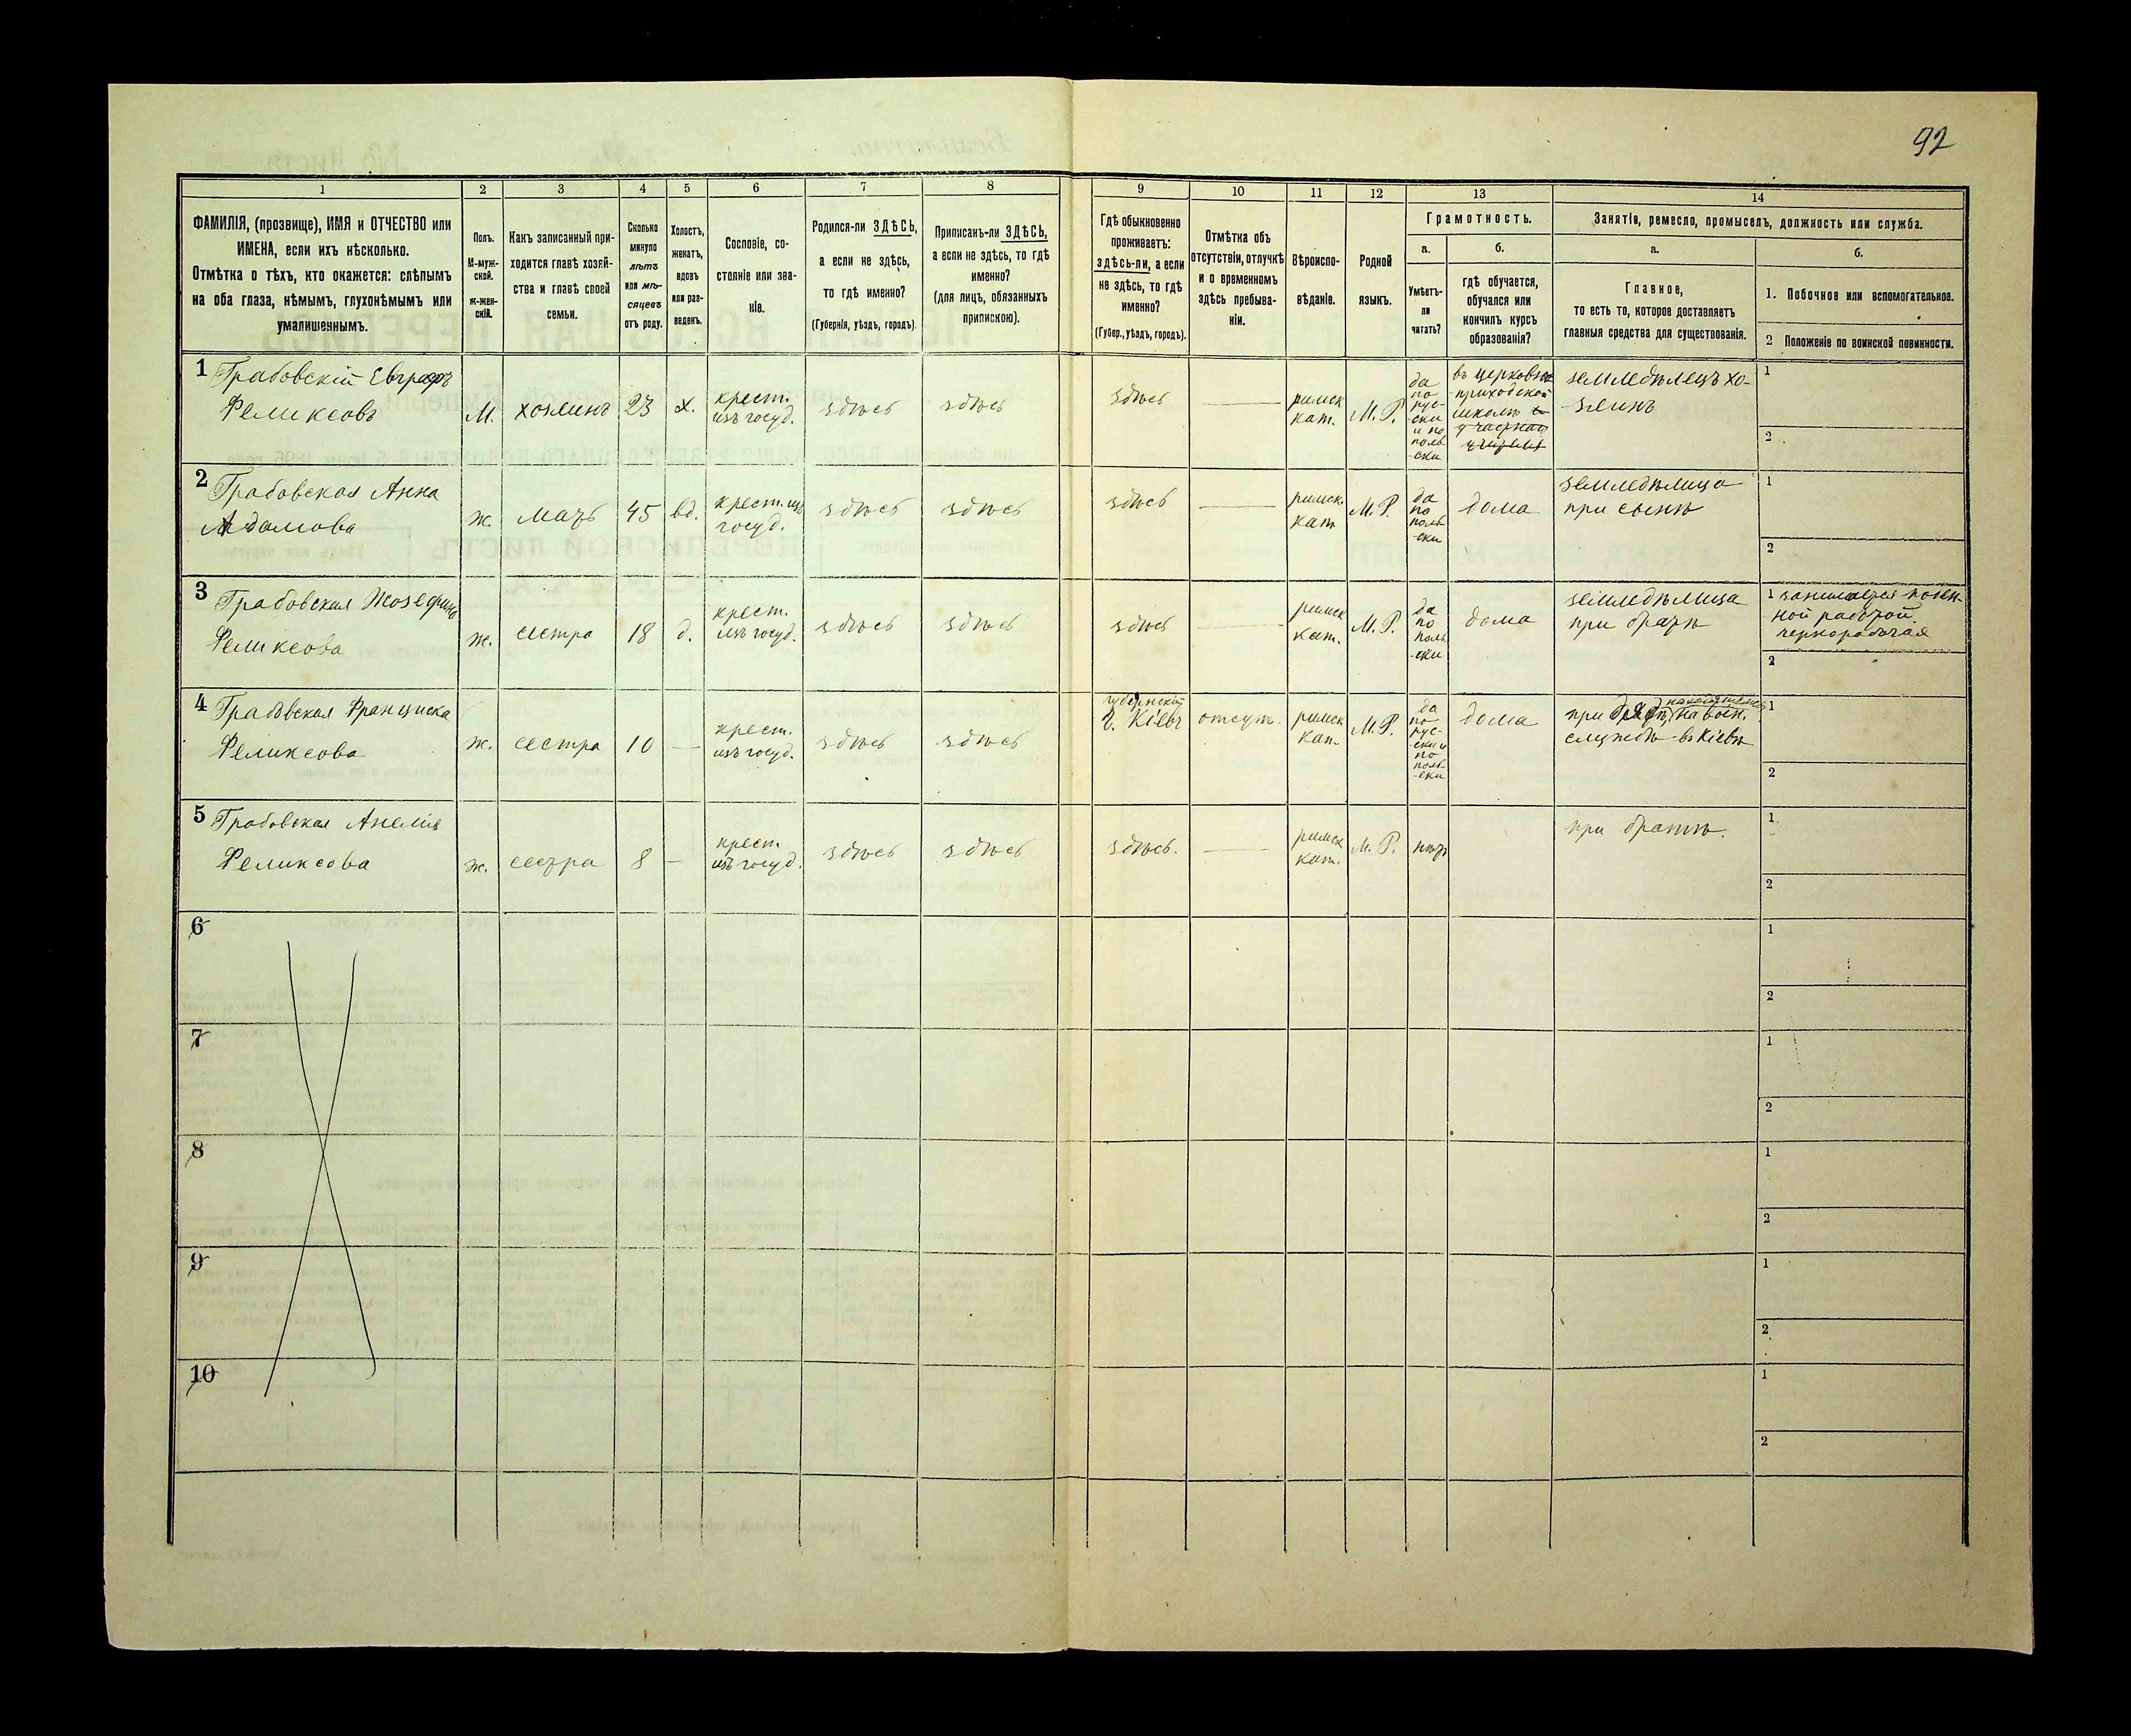 92
1
2
3
4
5
6
7
8
9
10
11
12
13
14
ФАМИЛІЯ, (прозвище), ИМЯ и ОТЧЕСТВО или
ИМЕНА, если ихъ нѣсколько.
Отмѣтка о тѣхъ, кто окажется: слѣпымъ
на оба глаза, нѣмымъ, глухонѣмымъ или
умалишеннымъ.
Полъ.
М-муж-
ской.
ж-жен-
скій.
Какъ записанный при-
ходится главѣ хозяй-
ства и главѣ своей
семьи.
Сколько
минуло
лѣтъ
или мѣ-
сяцевъ
отъ роду.
Холостъ,
женатъ,
вдовъ
или раз-
веденъ.
Сословіе, со-
стояніе или зва-
ніе.
Родился-ли ЗДѢСЬ,
а если не здѣсь,
то гдѣ именно?
(Губернія, уѣздъ, городъ).
Приписанъ-ли ЗДѢСЬ,
а если не здѣсь, то гдѣ
именно?
(для лицъ, обязанныхъ
припискою).
Гдѣ обыкновенно
проживаетъ:
здѣсь-ли, а если
не здѣсь, то гдѣ
именно?
(Губер., уѣздъ, городъ).
Отмѣтка объ
отсутствіи, отлучкѣ
и о временномъ
здѣсь пребыва-
ніи.
Вѣроиспо-
вѣданіе.
Родной
языкъ.
Грамотность.
а.
Умѣетъ-
ли
читать?
б.
гдѣ обучается,
обучался или
кончилъ курсъ
образованія?
Занятіе, ремесло, промыселъ, должность или служба.
а.
Главное,
то есть то, которое доставляетъ
главныя средства для существованія.
б.
1. Побочное или вспомогательное.
2 Положеніе по воинской повинности.
1 Грабовскій Евграфъ
Феликсовъ
М.
хозяинъ
23
х.
крест.
изъ госуд.
здѣсь
здѣсь
здѣсь
римск
кат.
М. Р.
да
по
рус-
ски
и по
поль
-ски
въ церковно
приходской
школѣ
землѣделецъ хо-
-зяинъ
1
2
2 Грабовская Анна
Адамова
ж
мать
45
вд.
крест. изъ
госуд.
здѣсь
здѣсь
здѣсь
римск.
кат
М. Р.
да
по
поль
-ски
дома
землѣделица
при сынѣ
1
2
3 Грабовская Жозефина
Феликсова
ж.
сестра
18
д.
крест.
изъ госуд.
здѣсь
здѣсь
здѣсь
римск
кат.
М. Р.
да
по
поль
-ски
дома
землѣделица
при братѣ
1 занимается поден-
ной работой.
чернорабочая
2
4 Грабовская Франциска
Феликсова
ж.
сестра
10
—
крест.
изъ госуд.
здѣсь
здѣсь
губернскій
г. Кіевъ
отсут.
римск
кат.
М. Р.
да
по
рус-
ски и
по
поль-
-ски
дома
на воен.
службѣ въ Кіевѣ
1
2
5 Грабовская Анелія
Феликсова
ж.
сестра
8
—
крест.
изъ госуд.
здѣсь
здѣсь
здѣсь.
римск
кат.
М. Р.
нѣтъ
при братѣ.
1
2
6
1
2
7
1
2
8
1
2
9
1
2
10
1
2